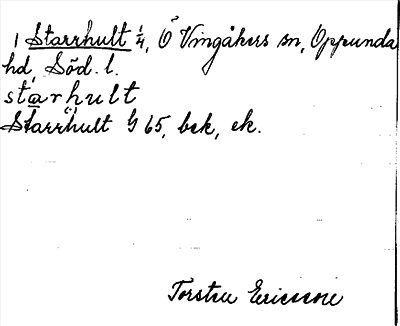 1 Starrhult 1/4, Ö Vingåkers sn, Oppunda
hd, Söd. l.
starhult
Starrhult G 65, bek, ek.
Torsten Ericsson